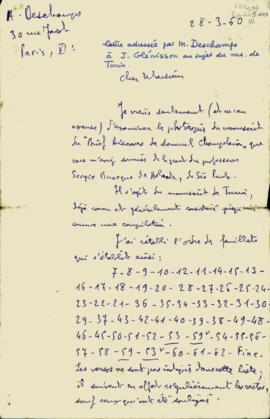 A. Deschamps
28-3-60
30 rue Jacob
Paris, VI:
lettre adressée par M. Deschamps
à J. Glénisson au sujet du ms. de
Turin.
Cher Monsieur
Je viens seulement
d'examiner la photocopie du manuscrit
du Brief Discours de Samuel Champlain, que
vous m'avez de la part du professeur
Sergio Buarque de Holanda, de São Paulo.
Il s'agit du manuscrit de Turin,
déjà connu et généralement considéré
comme une compilation.
J'ai rétabli l'ordre des feuillets
qui s'établit ainsi:
7-8-9-10-12-11-14-15-13-
16-17-18-19-20-28-27-26-25-24-
23-22-21-36-35-34-33-32-31-30-
29-37-43-42-41-40-39-38-49-48-
46-45-50-51-52-53-59v-54-55-56-
57-58-59-53v-60-61-62-Fine.
Les versos ne sont pas indiqués dans cette liste;
ils suivent en effet régulièrement les rectos,
sauf ceux qui ont été soulignés.